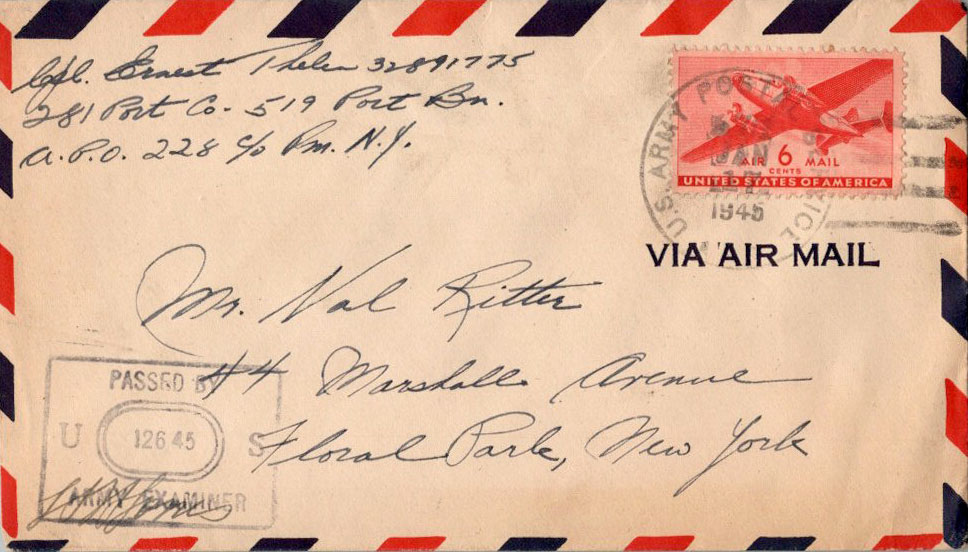 Cpl. Ernest Thelen 32891775
281 Port Co. - 519 Port Bn.
A.P.O. 228 c/o Pm. N.Y.
U.S. ARMY POSTAL
JAN
1945
AIR 6 MAIL
CENTS
UNITED STATES OF AMERICA
VIA AIR MAIL
Mr. Val Ritter
44 Marshall Avenue
Floral Park, New York
PASSED BY
U 12645 S
ARMY EXAMINER